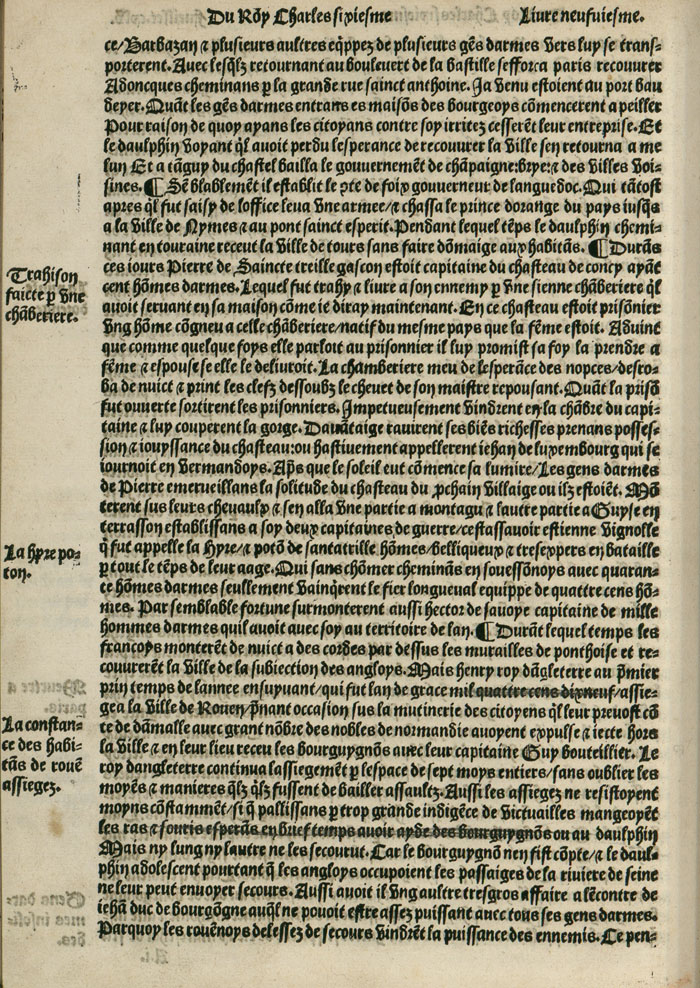 Du Roy Charles sixiesme
Liure neufuiesme.
ce/Barbazan ⁊ plusieurs aultres eq̃ppez de plusieurs gẽs darmes vers luy se trans-
porterent. Auec lesq̃lz retournant au bouleuert de la bastille sefforca paris recouurer
Adoncques cheminans ꝑ la grande rue sainct anthoine. Ja venu estoient au port bau
deyer. Quãt les gẽs darmes entrans es maisõs des bourgeoys cõmencerent a peiller
Pour raison de quoy ayans les citoyans contre soy irritez cesserẽt leur entreprise. Et
le daulphin voyant q̃l auoit perdu lesperance de recouurer la ville sen retourna a me
lun Et a tãguy du chastel bailla le gouuernemẽt de chãpaigne:brye:⁊ des villes voi-
sines. ¶ Sẽblablement il establit le cõte de foix gouuerneur de languedoc. Qui tãtost
apres q̃l fut saisy de loffice leua vne armee/⁊ chassa le prince dorange du pays iusq̃s
a la ville de Nymes ⁊ au pont sainct esperit. Pendant lequel tẽps le daulphin chemi-
nant en touraine receut la ville de tours sans faire dõmaige aux habitãs. ¶ Durãs
ces iours Pierre de Saincte treille gascon estoit capitaine du chasteau de concy ayãt
cent hõmes darmes. Lequel fut trahy ⁊ liure a son ennemy ꝑ vne sienne chãberiere q̃l
auoit seruant en sa maison cõme ie diray maintenant. En ce chasteau estoit prisõnier
vng hõme cõgneu a celle chãberiere/natif du mesme pays que la fẽme estoit. Aduint
que comme quelque foys elle parloit au prisonnier il luy promist sa foy la prendre a
fẽme ⁊ espouse se elle le deliuroit. La chamberiere meu de lesperãce des nopces/desro-
ba de nuict ⁊ print les clefz dessoubz le cheuet de son maistre repousant. Quãt la prisõ
fut ouuerte sortirent les prisonniers. Impetueusement vindrent en la chãbre du capi-
taine ⁊ luy couperent la gorge. Dauãtaige rauirent ses biẽs richesses prenans posses-
sion ⁊ iouyssance du chasteau:ou hastiuement appellerent iehan de luxembourg qui se
iournoit en vermandoys. Ap̃s que le soleil eut cõmence sa lumire/Les gens darmes
de Pierre emerueillans la solitude du chasteau du ꝓchain villaige ou ilz estoiẽt. Mõ
terent sus leurs cheuaulx ⁊ sen alla vne partie a montagu ⁊ lautre partie a Guyse en
terrasson establissans a soy deux capitaines de guerre/cestassauoir estienne vignolle
q̃ fut appelle la Hyre/⁊ potõ de santatrille hõmes/belliqueux ⁊ tresexpers en bataille
ꝑ tout le tẽps de leur aage. Qui sans chõmer cheminãs en souessõnoys auec quaran-
te hõmes darmes seullement vainq̃rent le fier longueual equippe de quattre cens hõ-
mes. Par semblable fortune surmonterent aussi hector de sauoye capitaine de mille
hommes darmes quil auoit auec soy au territoire de lan. ¶ Durãt lequel temps les
francoys monterẽt de nuict a des cordes par dessus les murailles de ponthoise et re-
couurerẽt la ville de la subiection des angloys. Mais henry roy dãgleterre au p̃mier
prin temps de lannee ensuyuant/qui fut lan de grace mil quattre cens dixneuf/assie-
gea la ville de Rouen/p̃nant occasion sus la mutinerie des citoyens q̃l leur preuost cõ
te de dãmalle auec grant nõbre des nobles de normandie auoyent expulse ⁊ iecte hors
la ville ⁊ en leur lieu receu les bourguygnõs auec leur capitaine Guy bouteillier. Le
roy dangleterre continua lassiegemẽt ꝑ lespace de sept moys entiers/sans oublier les
moyẽs ⁊ manieres q̃lz q̃lz fussent de bailler assaultz. Aussi les assiegez ne resistoyent
moyns cõstammẽt/si q̃ pallissans ꝑ trop grande indigẽce de victuailles mangeoyẽt
les ras ⁊ souris esperãs en brief temps auoir ayde des bourguygnõs ou au daulphin
Mais ny lung ny lautre ne les secourut. Car le bourguygnõ nen fist cõpte/⁊ le daul-
phin adolescent pourtant q̃ les angloys occupoient les passaiges de la riuiere de seine
ne leur peut enuoyer secours. Aussi auoit il vng aultre tresgros affaire a lẽcontre de
iehã duc de bourgõgne auq̃l ne pouoit estre assez puissant auec tous ses gens darmes.
Parquoy les rouẽnoys delessez de secours vindrẽt la puissance des ennemis. Ce pen-
Trahison
faicte ꝑ vne
chãberiere.
La hyre po-
ton.
La constan-
ce des habi-
tãs de rouẽ
assiegez.